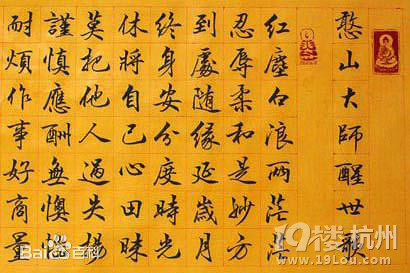 憨山大師醒世歌
紅塵白浪兩茫茫
忍辱柔和是妙方
到處隨緣延歲月
終身安分度時光
休將自己心田昧
莫把他人過失揚
謹慎應酬無懊惱
耐煩作事好商量
Bai百科
19楼杭州
www.19lou.com